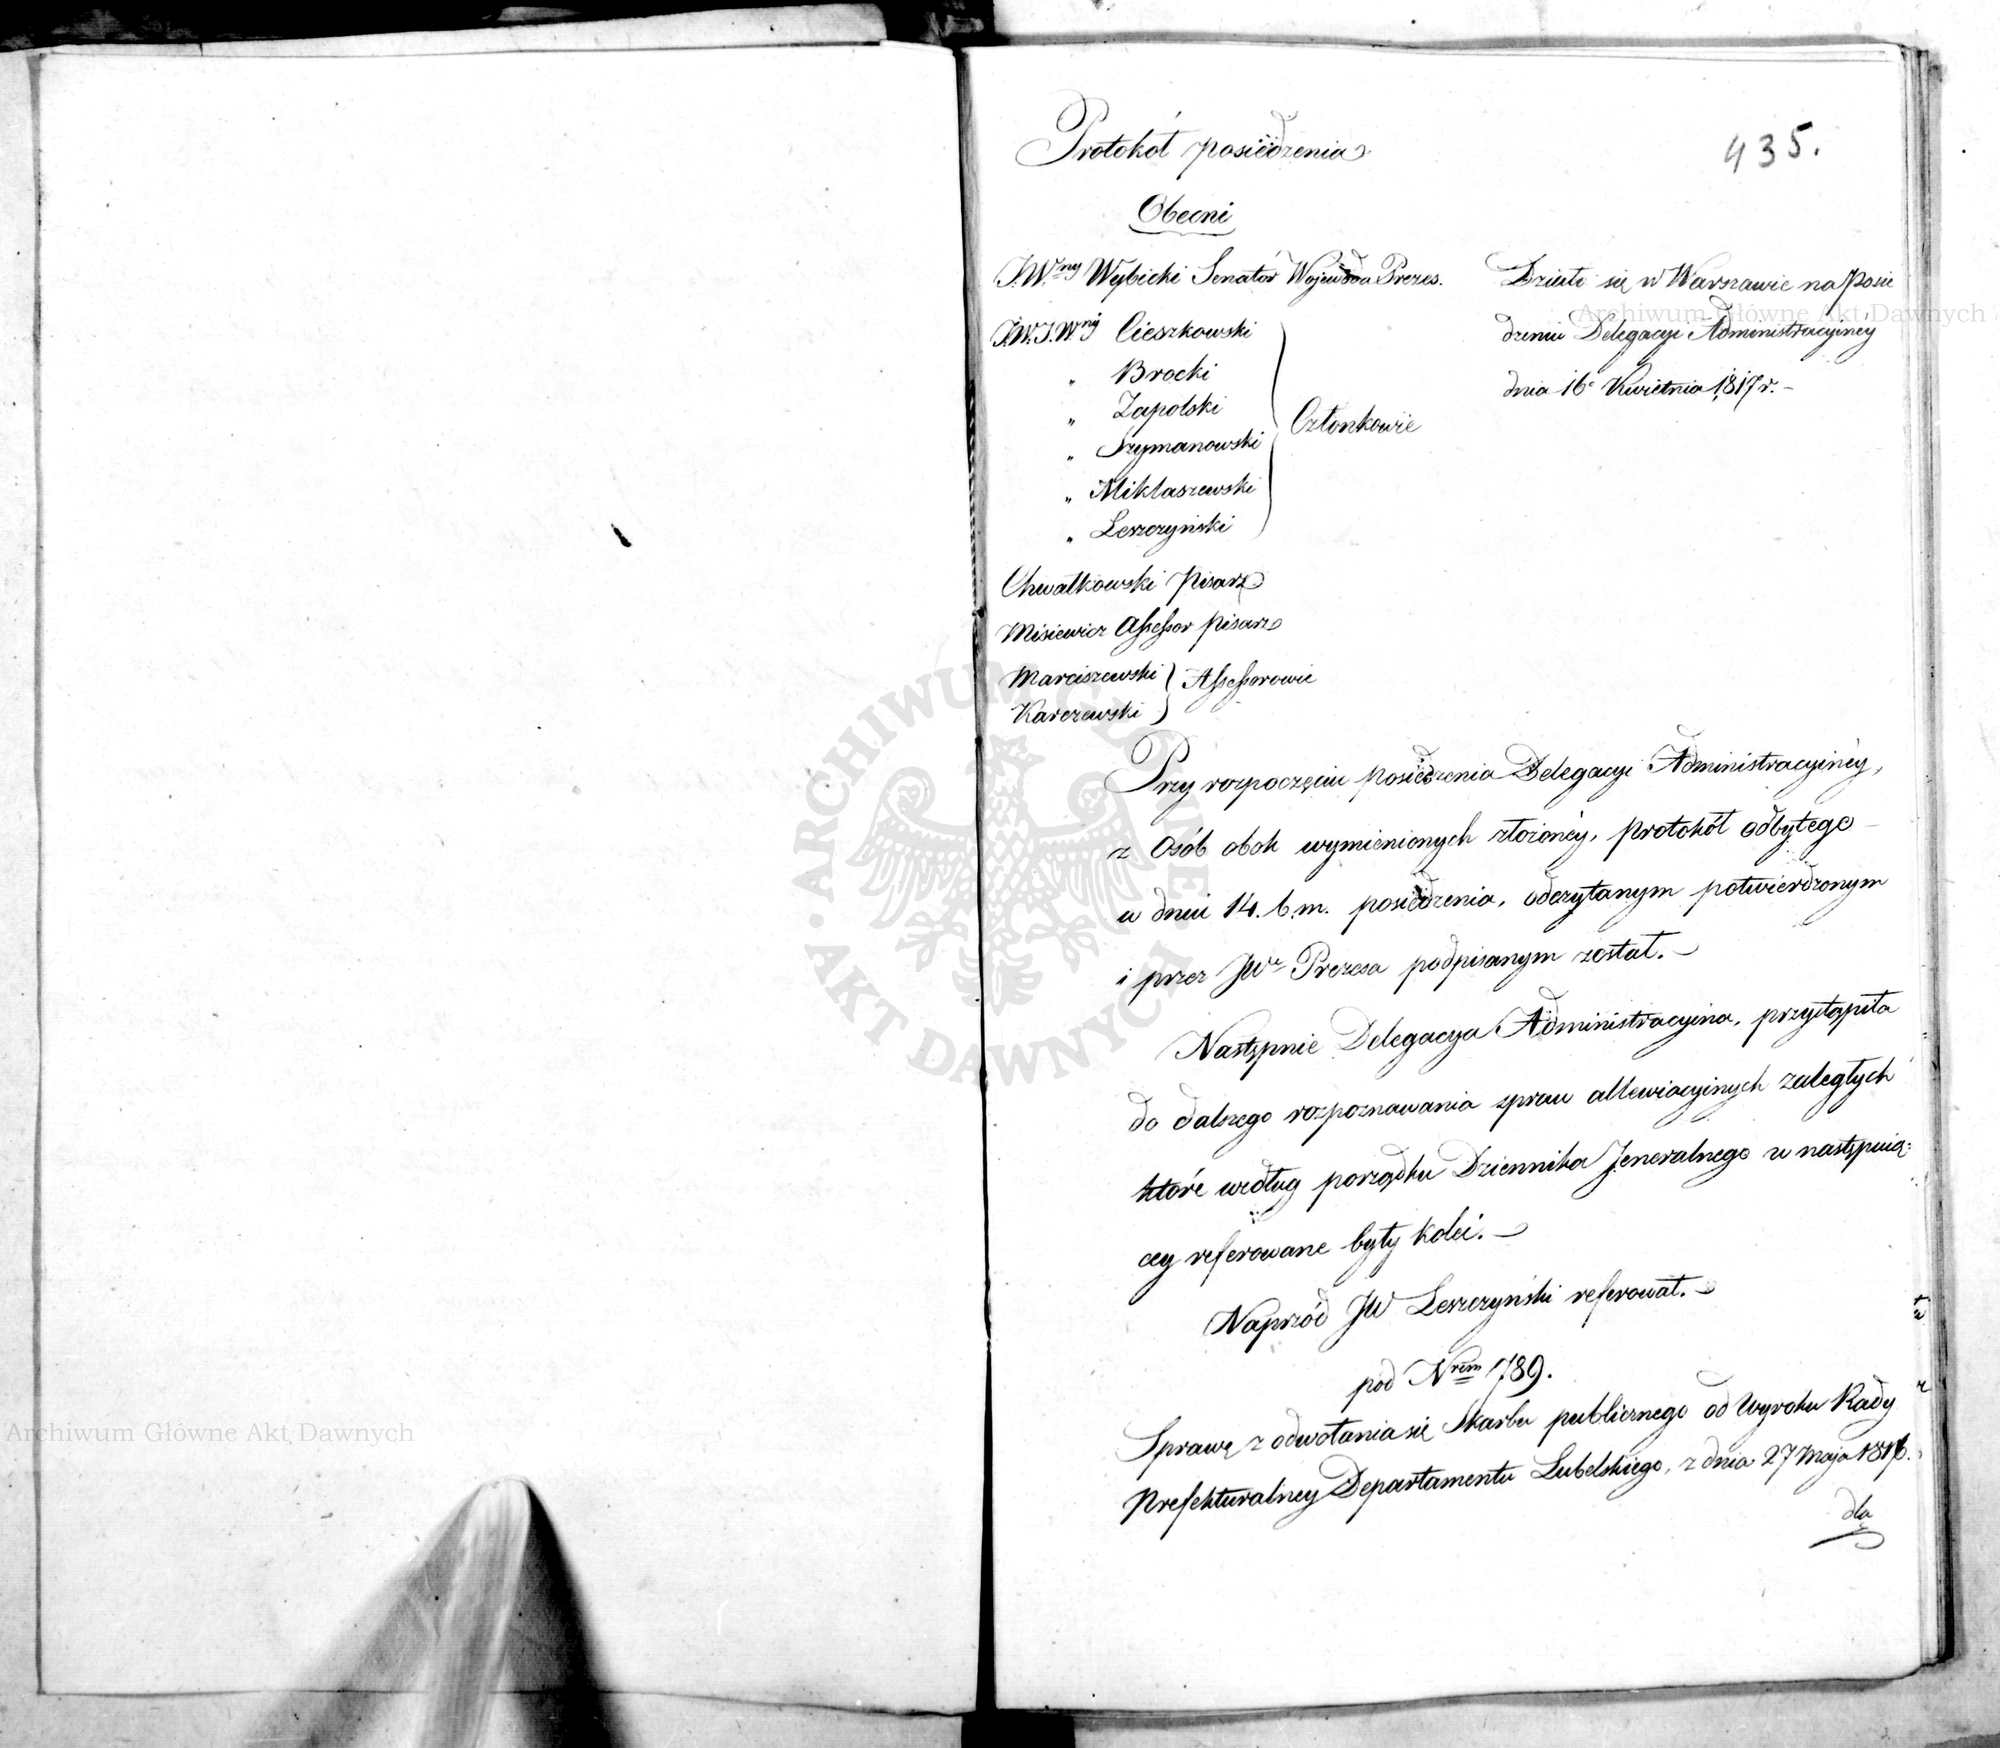 435.
Protokół posiedzenia
Obecni
J.W.ny Wybicki Senator Wojewoda Prezes.
J.W.J.Wny Cieszkowski
„ Brocki
„ Zapolski
„ Szymanowski
„ Miklaszewski
„ Leszczyński
Członkowie
Chwalkowski Pisarz
Misiewicz Assessor pisarz
Marciszewski
Karczewski
Assessorowie
Działo się w Warszawie na Posie
dzeniu Delegacyi Administracyiney
dnia 16o Kwietnia 1817 r. –
Przy rozpoczęciu posiedzenia Delegacyi Administracyiney,
z Osób obok wymienionych złożoney, protokół odbytego
w dniu 14. b. m. posiedzenia, odczytanym potwierdzonym
i przez JWo Prezesa podpisanym został. –
Następnie Delegacya Administracyina, przystąpiła
do dalszego rozpoznawania spraw allewiacyinych zaległych
które według porządku Dziennika Jeneralnego w następuią:
cey referowane były kolei. –
Naprzód JW Leszczyński referował. –
pod Nrem 789.
Sprawę z odwołania się Skarbu publicznego od Wyroku Rady
Prefekturalney Departamentu Lubelskiego, z dnia 27 Maja 1816.
dla
Archiwum Główne Akt Dawnych
Archiwum Główne Akt Dawnych
ARCHIWUM GŁÓWNE AKT DAWNYCH